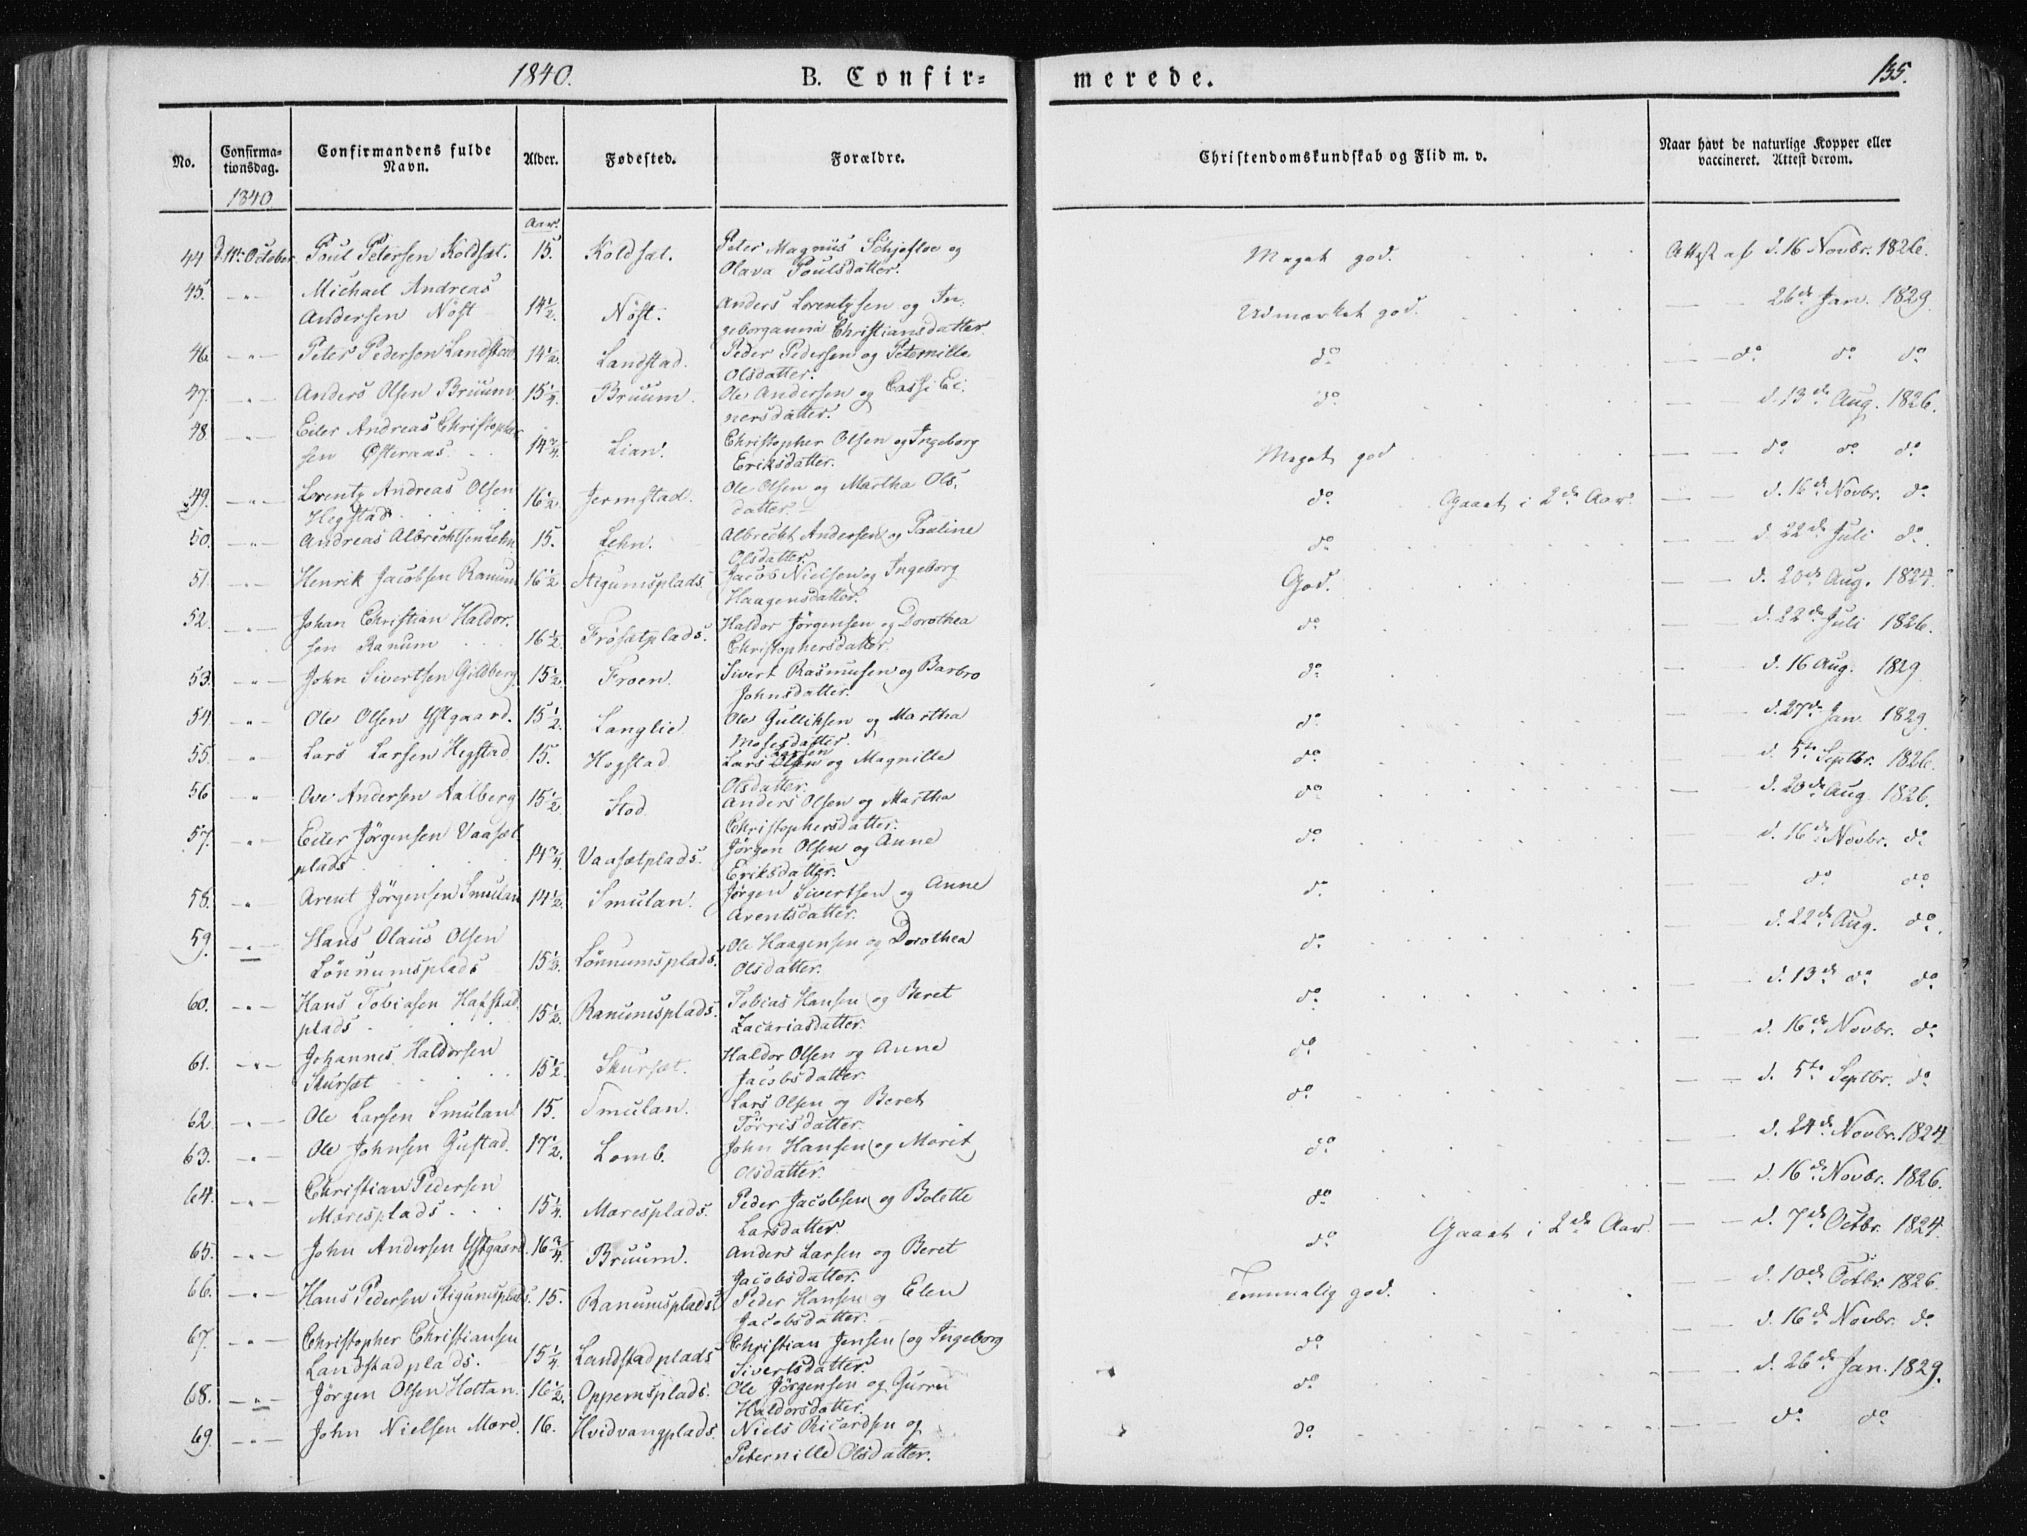 1840. B. Confir= merede. 135.
No. Confirma-tionsdag. Confirmandens fulde Navn. Alder. Fødested. Forældre. Christendomskundskab og Flid m. v. Naar havt de naturlige Kopper eller vaccineret. Attest derom.
1840 Aar.
44 d. 11te October Poul Petersen Koldsæt. 15. Koldsæt. Peter Magnus Schjefloe og Olava Poulsdatter. Meget god. Attest af d. 16 Novbr. 1826.
45. -"- Michael Andreas Andersen Nöst 14 1/2. Nöst. Anders Lorentzsen og Ingeborganna Christiansdatter. Udmærket god. — — 26de Jan. 1829.
46 -"- Peter Pedersen Landstad 14 1/2. Landstad. Peder Pedersen og Peternille Olsdatter. do — — do do do
47. -"- Anders Olsen Bruum 15 1/4. Bruum. Ole Andersen og Easse Einersdatter. do d. 13de Aug. 1826.
48. -"- Eiler Andreas Christophersen Østeraas. 14 3/4. Lian. Christopher Olsen og Ingeborg Eriksdatter. Meget god — — do do do
49. -"- Lorentz Andreas Olsen Hegstad. 16 1/2. Jermstad. Ole Olsen og Martha Olsdatter do Gaaet i 2de Aar. — — d. 16de Novbr. do
50. -"- Andreas Albrechtsen Lehn 15. Lehn. Albrecht Andersen og Pauline Olsdatter. do — — d. 22de Juli do.
51. -"- Henrik Jacobsen Ranum 16 1/2. Stigumsplads. Jacob Nielsen og Ingeborg Haagensdatter. God. — — d. 20de Aug. 1824.
52. -"- Johan Christian Haldorsen Ranum 16 1/2. Frösætplads. Haldor Jørgensen og Dorothea Christophersdatter. do — — d. 22de Juli 1826.
53. -"- John Sivertsen Gildberg. 15 1/2. Froen. Sivert Rasmusen og Barbro Johnsdatter. do — — d. 16 Aug. 1829
54. -"- Ole Olsen Ystgaard. 15 1/2. Langlie. Ole Gulliksen og Martha Mosesdatter. do — — d. 27de Jan. 1829.
55. -"- Lars Larsen Hegstad 15. Hegstad Lars Larsen og Magnille Olsdatter. do d. 5te Septbr. 1826.
56 -"- Ove Andersen Kalberg 15 1/2. Stod. Anders Olsen og Martha Christophersdatter. do — — d. 20de Aug 1826.
57. -"- Eiler Jörgensen Vaasætplads 14 3/4. Vaasætplads. Jørgen Olsen og Anne Eriksdatter. do — — d. 16de Novbr. do
58. -"- Arent Jörgensen Smulan 14 1/2. Smulan. Jørgen Sivertsen og Anne Arentsdatter. do — — do do
59. -"- Hans Olaus Olsen Lönnumsplads 15 1/3. Lönnumsplads. Ole Haagensen og Dorothea Olsdatter. do — — d. 22de Aug. do.
60. -"- Hans Tobiasen Hafstadplads 15 1/2. Ranumsplads. Tobias Hansen og Beret Zacariasdatter. do — — d. 13de do do
61. -"- Johannes Haldorsen Skursæt 15 1/2. Skursæt. Haldor Olsen og Anne Jacobsdatter. do — — d. 16de Novbr. do
62. -"- Ole Larsen Smulan 15. Smulan. Lars Olsen og Beret Törrisdatter. do — — d. 5te Septbr. do
63. -"- Ole Johnsen Gustad. 17 1/2. Lomb. John Hansen og Marit Olsdatter. do — — d. 24de Novbr. 1824
64. -"- Christian Pedersen Mæresplads 15 1/4. Mæresplads. Peder Jacobsen og Bolette Larsdatter. do — — d. 16de Novbr. 1826.
65. -"- John Andersen Ystgaard 16 3/4. Bruum. Anders Larsen og Beret Jacobsdatter. do Gaaet i 2de Aar. — — d. 7de Octbr. 1824.
66. -"- Hans Pedersen Stigumsplads. 15. Ranumsplads. Peder Hansen og Elen Jacobsdatter. Temmelig god. — — d. 10de Octbr. 1826
67. -"- Christopher Christiansen Landstadplads. 15 1/4. Landstadplads Christian Jensen og Ingeborg Sivertsdatter. do — — d. 16de Novbr. do.
68. -"- Jörgen Olsen Holtan. 16 1/2. Oppemsplads. Ole Jørgensen og Gurru Haldorsdatter. do — — d. 26de Jan. 1829.
69. -"- John Nielsen Mære. 16. Hvidvangplads. Niels Ricardsen og Peternille Olsdatter. do — — do do